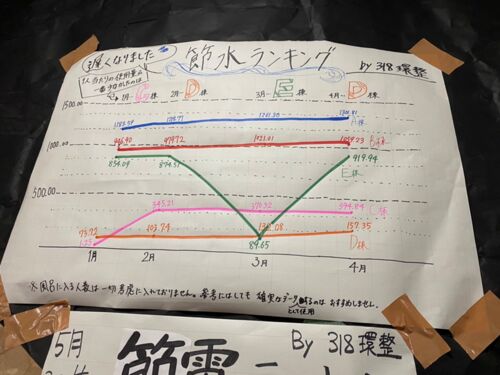 遅くなりました
節水ランキング
by 318 環整
1人当たりの使用量が
一番少なかったのは
1月- C棟 2月- D棟 3月- E棟 4月- D棟
1500.00
1000.00
500.00
A棟
B棟
E棟
919.94
854.09
345.21
370.32
394.84
C棟
73.72
103.74
157.35
D棟
1.25
89.65
1月
2月
3月
4月
※風呂に入る人数は一切考慮に入れておりません。参考にはしても 確実なデータとして使用するのはおすすめしません。
5月
節電
By 318 環整